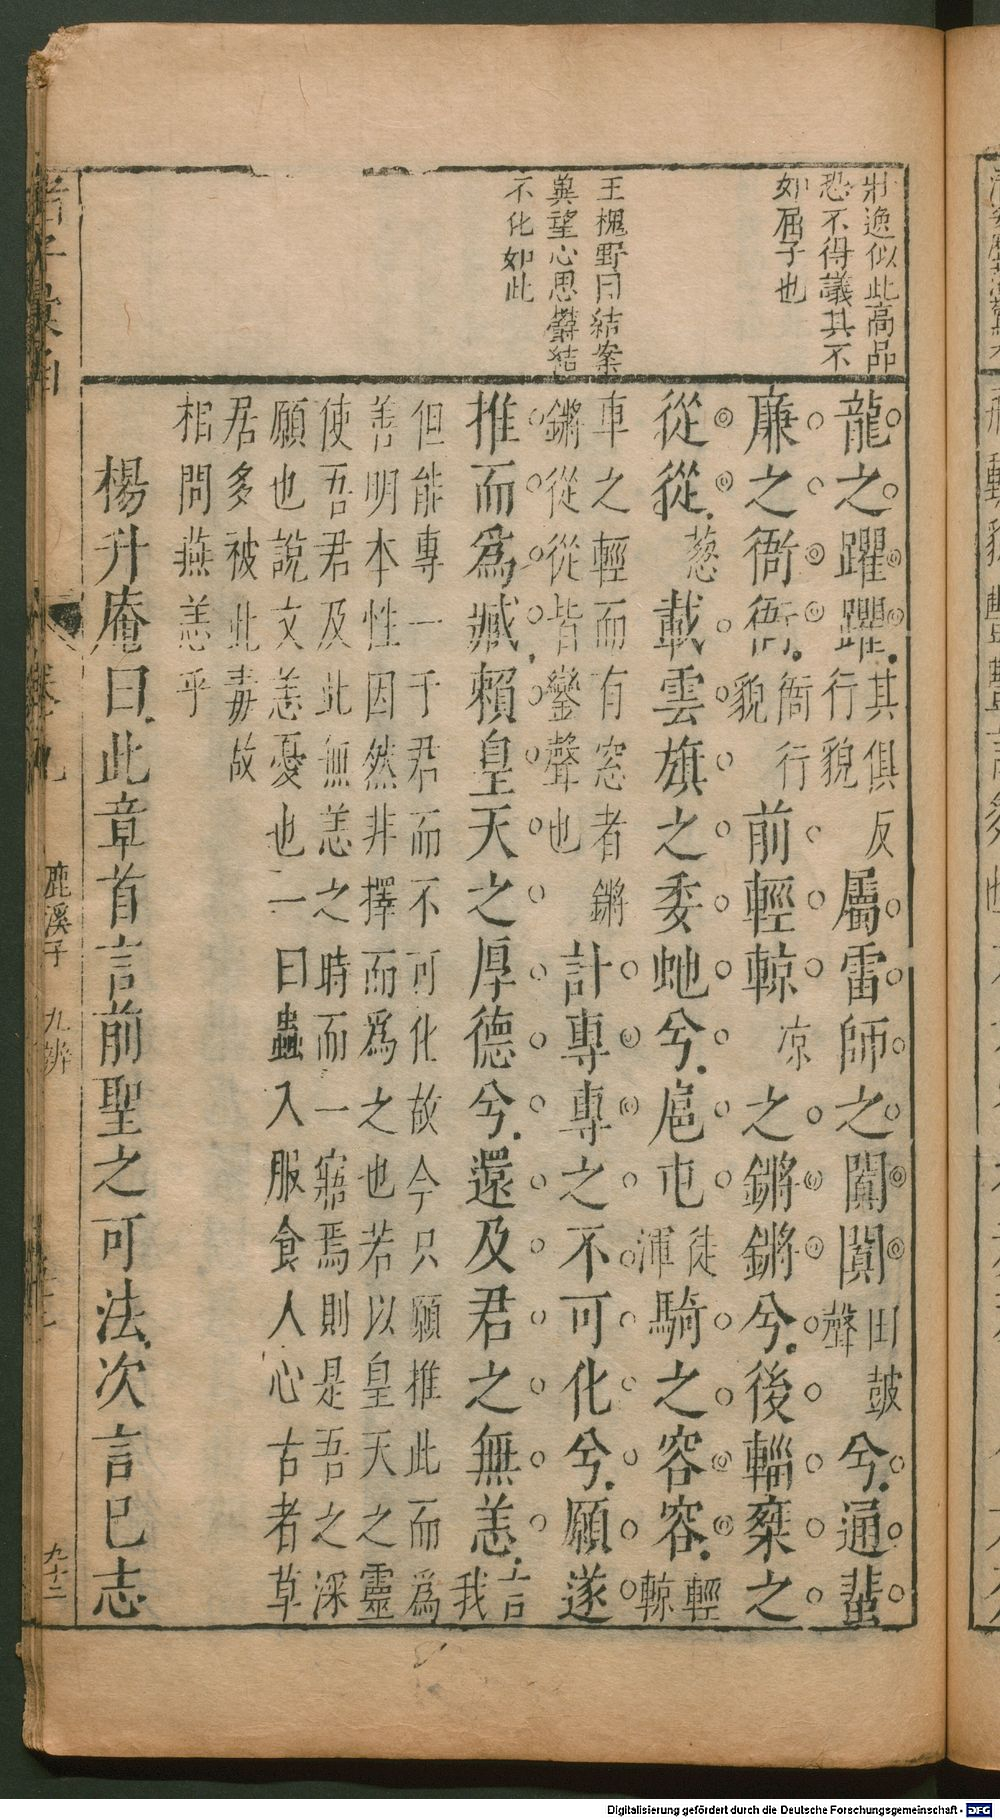 壯逸似此高品
恐不得議其不
如屈子也
王槐野曰結案
冀望心思鬱結
不化如此
龍之躍躍其俱反行貌屬雷師之闐闐田鼓聲兮通蜚
廉之衙衙衙行貌前輕輬凉之鏘鏘兮後輜椉之
從從葱載雲旗之委虵兮扈屯徒渾騎之容容輕輬
車之輕而有窓者鏘鏘從從皆鑾聲也計專專之不可化兮願遂
推而爲臧賴皇天之厚德兮還及君之無恙言我
但能專一于君而不可化故今只願推此而爲
善明本性因然非擇而爲之也若以皇天之靈
使吾君及此無恙之時而一寤焉則是吾之深
願也說文恙憂也一曰蟲入服食人心古者草
居多被此毒故
相問無恙乎
楊升庵曰此章首言前聖之可法次言已志
卷九
鹿溪子 九辨
九十二
Digitalisierung gefördert durch die Deutsche Forschungsgemeinschaft - DFG